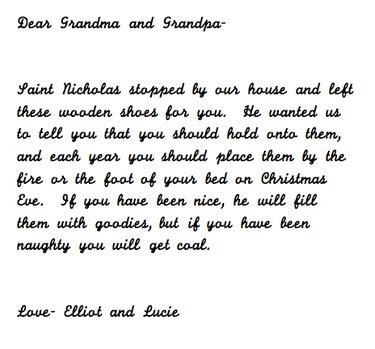 Dear Grandma and Grandpa-
Saint Nicholas stopped by our house and left
these wooden shoes for you.  He wanted us
to tell you that you should hold onto them,
and each year you should place them by the
fire or the foot of your bed on Christmas
Eve.  If you have been nice, he will fill
them with goodies, but if you have been
naughty you will get coal.
Love- Elliot and Lucie